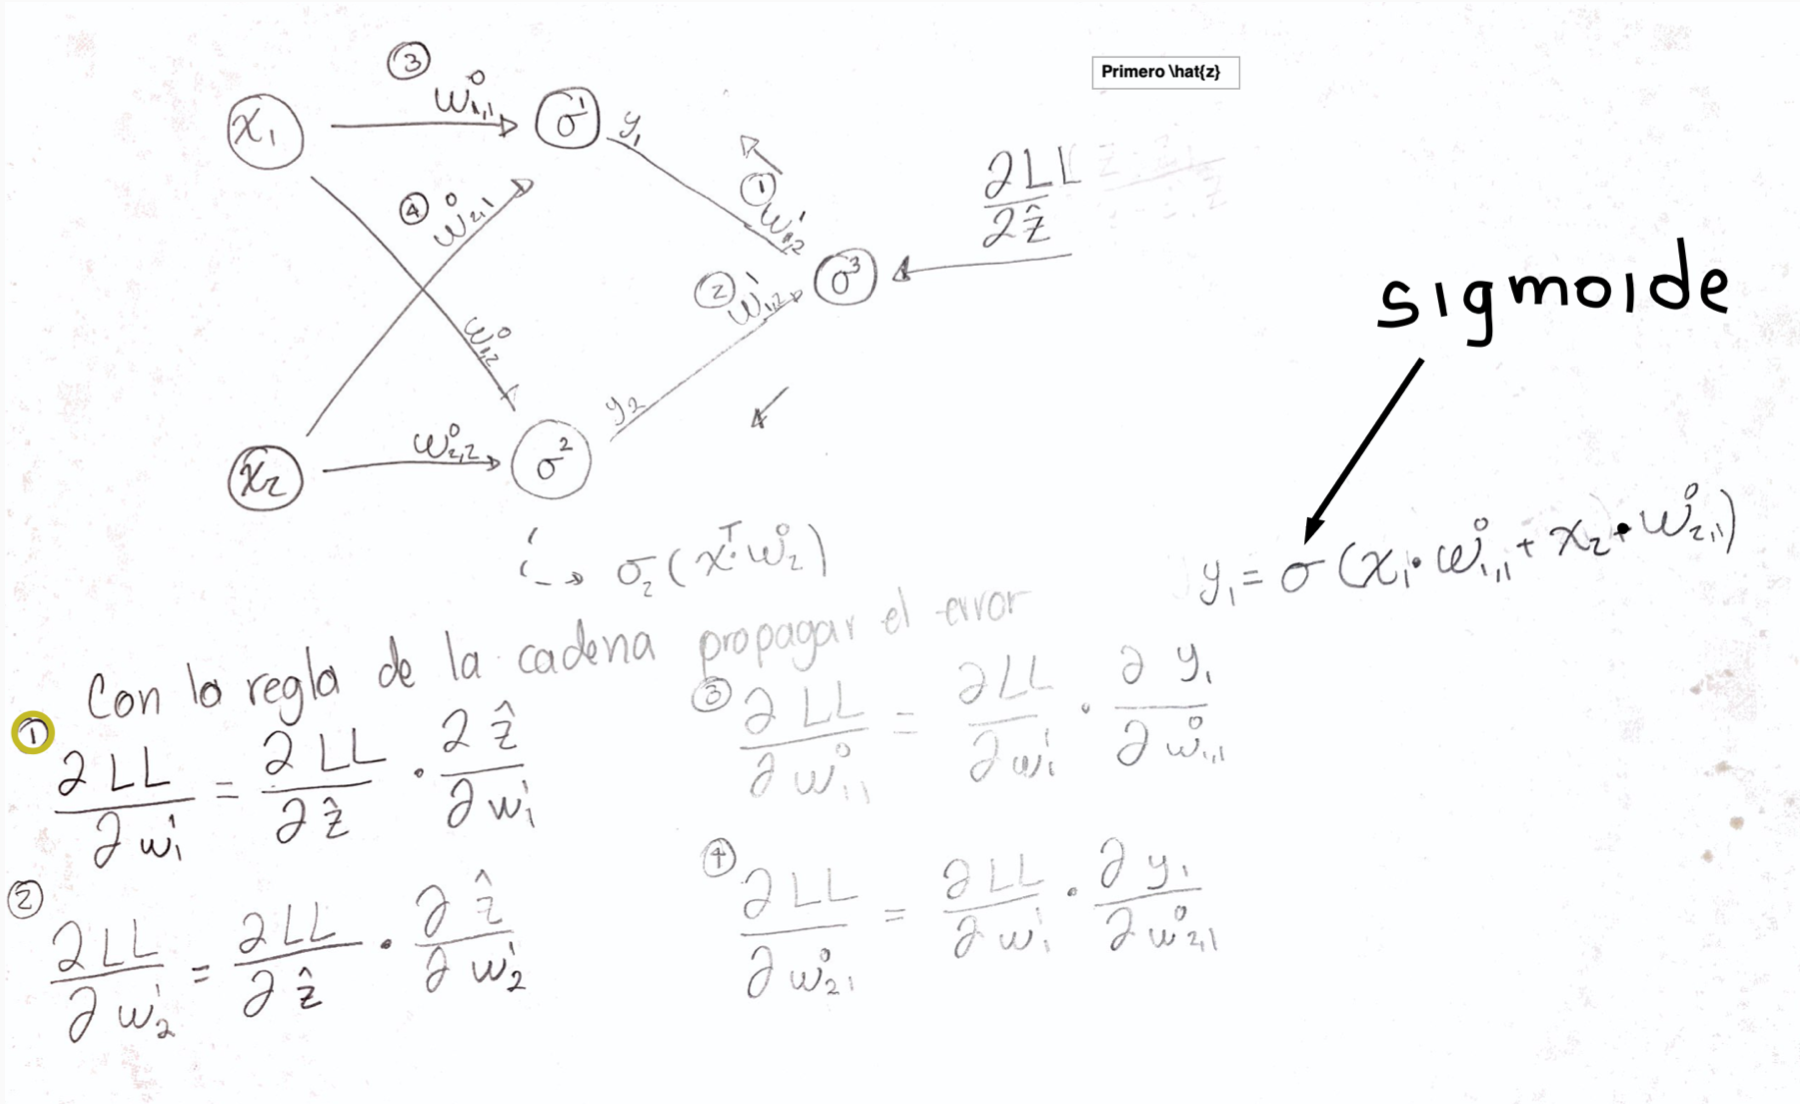 Primero \hat{z}
③
w⁰₁,₁
x₁
σ¹
y₁
①
∂LL
2ẑ
④ w⁰₂,₁
w⁰₁,₂
② w¹₁,₂
σ³
sigmoide
y₂
x₂
w⁰₂,₂
σ²
σ₂(xᵀ·w⁰₂)
y₁ = σ(x₁·w⁰₁,₁ + x₂·w⁰₂,₁)
Con la regla de la cadena propagar el error
① ∂LL/∂w¹₁ = ∂LL/∂ẑ · ∂ẑ/∂w¹₁
② ∂LL/∂w¹₂ = ∂LL/∂ẑ · ∂ẑ/∂w¹₂
③ ∂LL/∂w⁰₁₁ = ∂LL/∂w¹₁ · ∂y₁/∂w⁰₁,₁
④ ∂LL/∂w⁰₂₁ = ∂LL/∂w¹₁ · ∂y₁/∂w⁰₂,₁